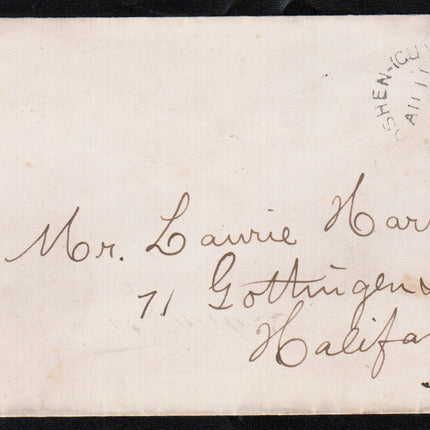 OSHEN-IGU
AU 11
Mr. Laurie Har
71 Gottingen
Halifa